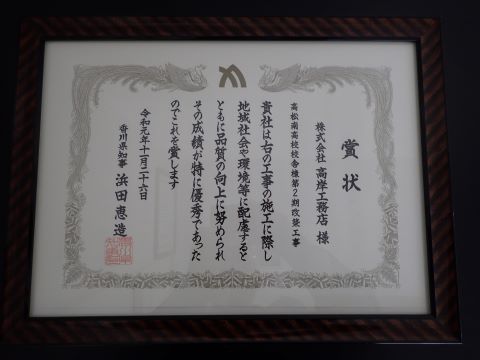 賞状
株式会社 高岸工務店 様
高松南高校校舎棟第2期改築工事
貴社は右の工事の施工に際し
地域社会や環境等に配慮すると
ともに品質の向上に努められ
その成績が特に優秀であった
のでこれを賞します
令和元年十一月二十六日
香川県知事 浜田恵造